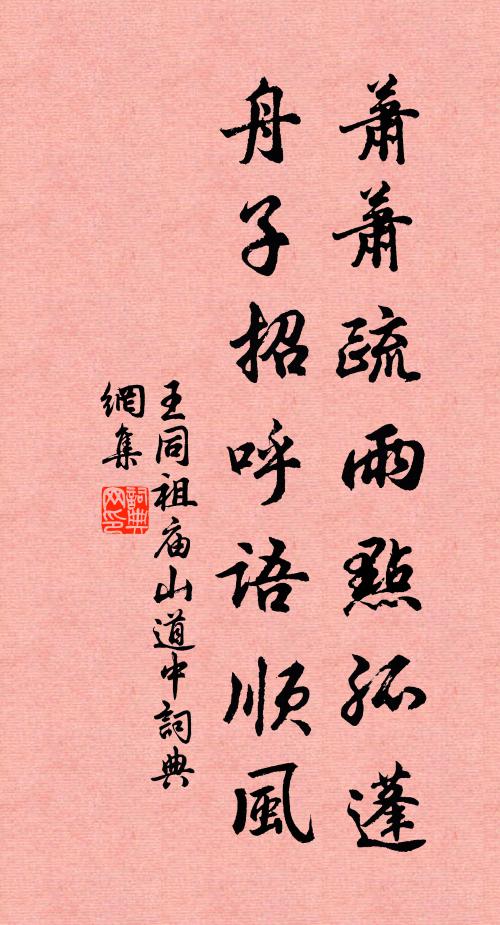 蕭蕭疏雨點孤蓬
舟子招呼語順風
王同祖庙山道中詞典
網集
詞典
网印